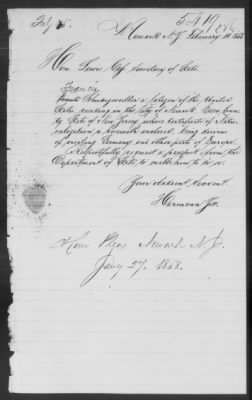 Feby 15.
5419
Newark N.J. February 11. 1858
Hon. Lewis Cass Secretary of State
Francis
a Citizen of the United
States, residing in the City of Newark
State of New Jersey whose Certificate of Natu-
ralization is herewith enclosed, being desirous
of visiting Germany and other parts of Europe
Respectfully request a passport from the
Department of State, to enable him to do so.
Your obedient Servant
Hermann
Newark N.J.
Jany 27. 1858.